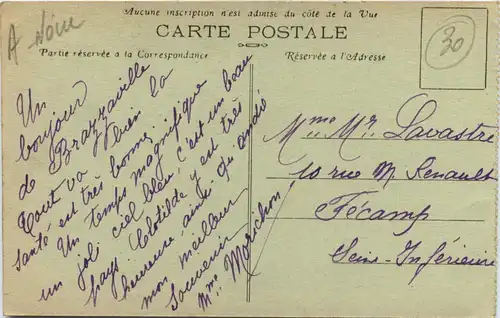 A Noire
30
Aucune inscription n'est admise du côté de la Vue
CARTE POSTALE
Partie réservée a la Correspondance
Réservée a l'Adresse
Un
bonjour
de Brazzaville
Tout va bien la
santé est très bonne
Un temps magnifique
un joli ciel bleu c'est un beau
pays Clotilde y est très
heureuse ainsi qu'André
mon meilleur
Souvenir
Mme Morichon
Mme Mr Lavastre
10 rue M. Renault
Fécamp
Seine-Inférieure